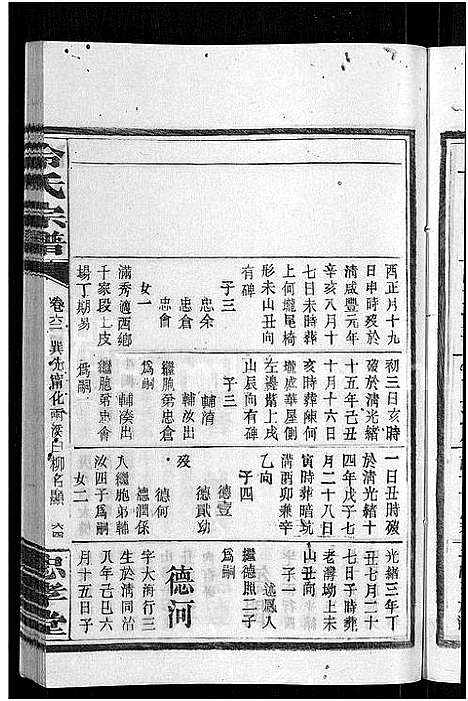 酉正月十九
日申時歿於
清咸豐元年
辛亥八月十
七日未時葬
上何壠尾椅
形未山丑向
有碑
子三
忠余
忠倉
忠會
女一
滿秀適西鄉
千家段上皮
場丁期易
初三日亥時
歿於清光緒
十五年己丑
十月十六日
亥時葬陳何
壠盧華屋側
左邊紫上戌
山辰向有碑
子三
輔清
輔汝出
繼胞弟忠倉
為嗣
輔湊出
繼胞弟忠會
為嗣
一日丑時歿
於清光緒十
四年戊子七
月二十八日
寅時葬暗坑
清酉卯兼辛
乙向
子四
德壹
德貳幼
歿
德何
德潤係
入繼胞弟輔
汝四子為嗣
女二
光緒三年丁
丑七月二十
七日子時葬
老灣坳上未
山丑向
子一
述鳳入
繼德熙二子
為嗣
德河
字大海行三
生於清同治
八年己巳六
月十五日子
氏宗譜
卷六二
巽允甯化雨溪白柳名顯
六四
忠孝堂